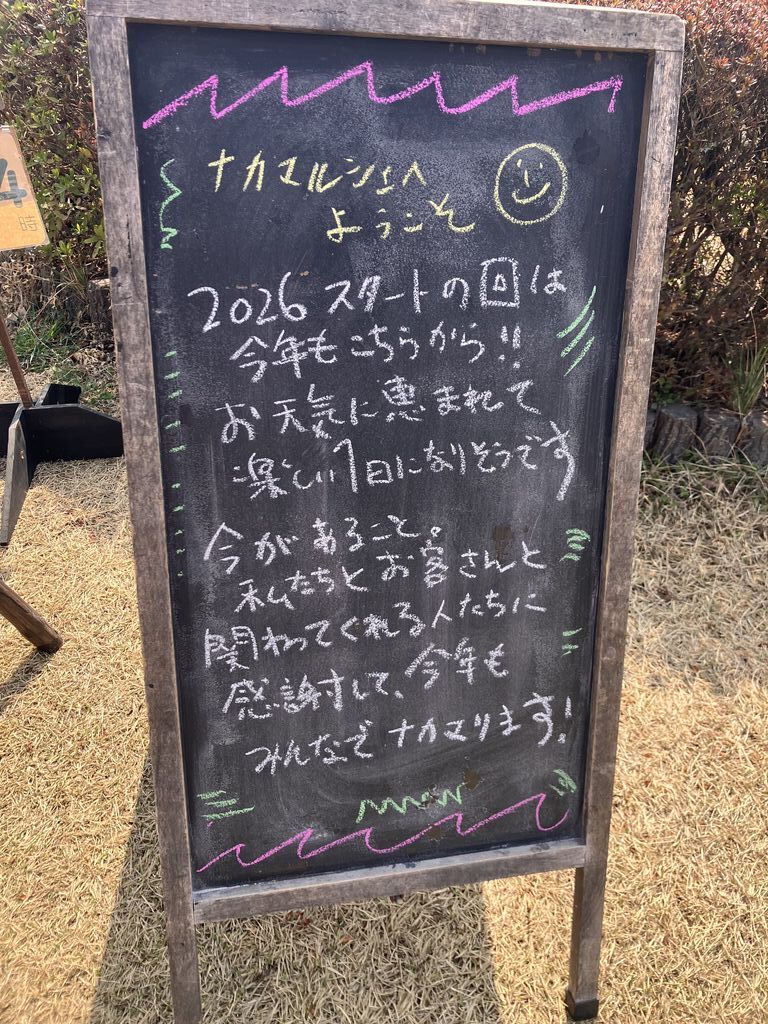 ナカマルシェへ
ようこそ
2026 スタートの回は
今年もこちらから!!
お天気に恵まれて
楽しい1日になりそうです
今があること。
私たちとお客さんと
関わってくれる人たちに
感謝して、今年も
みんなでナカマります!
4
時